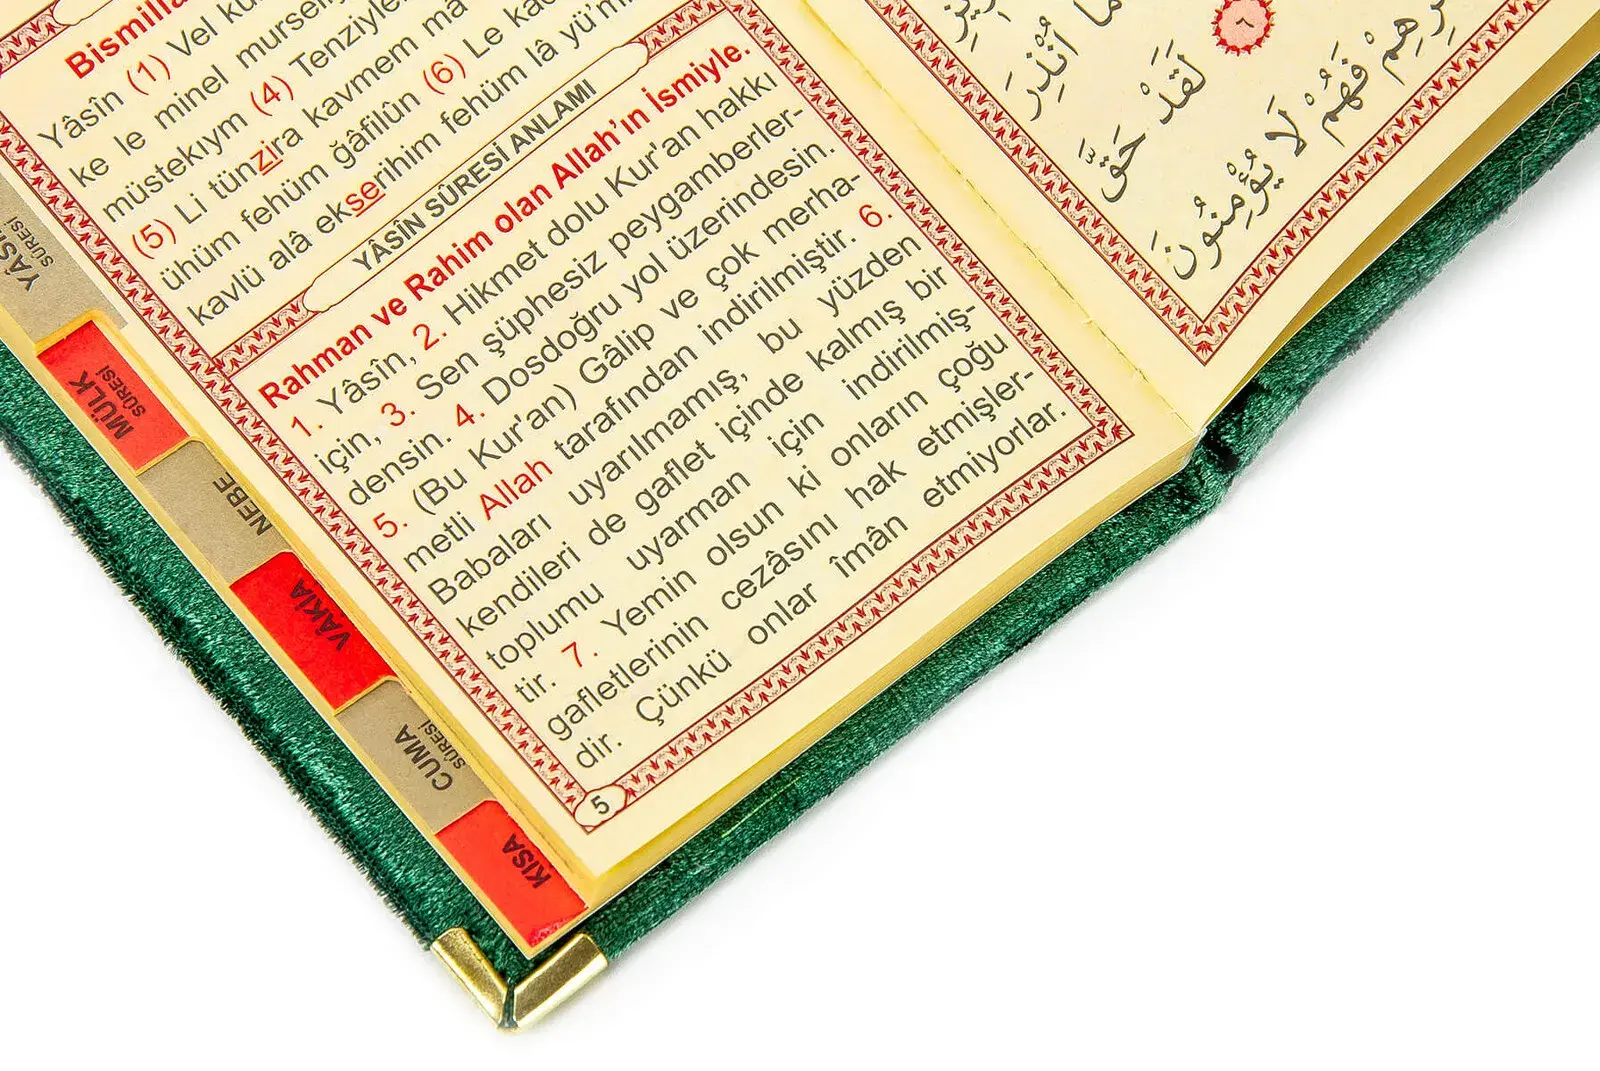 Bismilla
Yâsîn (1) Vel ku
ke le minel mursel
müstekıym (4) Tenziyle
(5) Li tünzira kavmem mâ
ühüm fehüm ğâfilûn (6) Le kad
kavlü alâ ekserihim fehüm lâ yü'm
YÂSÎN SÛRESİ ANLAMI
Rahman ve Rahim olan Allah'ın İsmiyle.
1. Yâsîn, 2. Hikmet dolu Kur'an hakkı
için, 3. Sen şüphesiz peygamberler-
densin. 4. Dosdoğru yol üzerindesin.
5. (Bu Kur'an) Gâlip ve çok merha-
metli Allah tarafından indirilmiştir. 6.
Babaları uyarılmamış, bu yüzden
kendileri de gaflet içinde kalmış bir
toplumu uyarman için indirilmiş-
tir. 7. Yemin olsun ki onların çoğu
gafletlerinin cezâsını hak etmişler-
dir. Çünkü onlar îmân etmiyorlar.
5
YÂSÎ
SÛRESİ
MÜLK
SÛRESİ
NEBE
VÂKIA
CUMA
SÛRESİ
KISA
مَا أُنْذِرَ
٦
لَقَدْ حَقَّ
فَهُمْ لَا يُؤْمِنُونَ